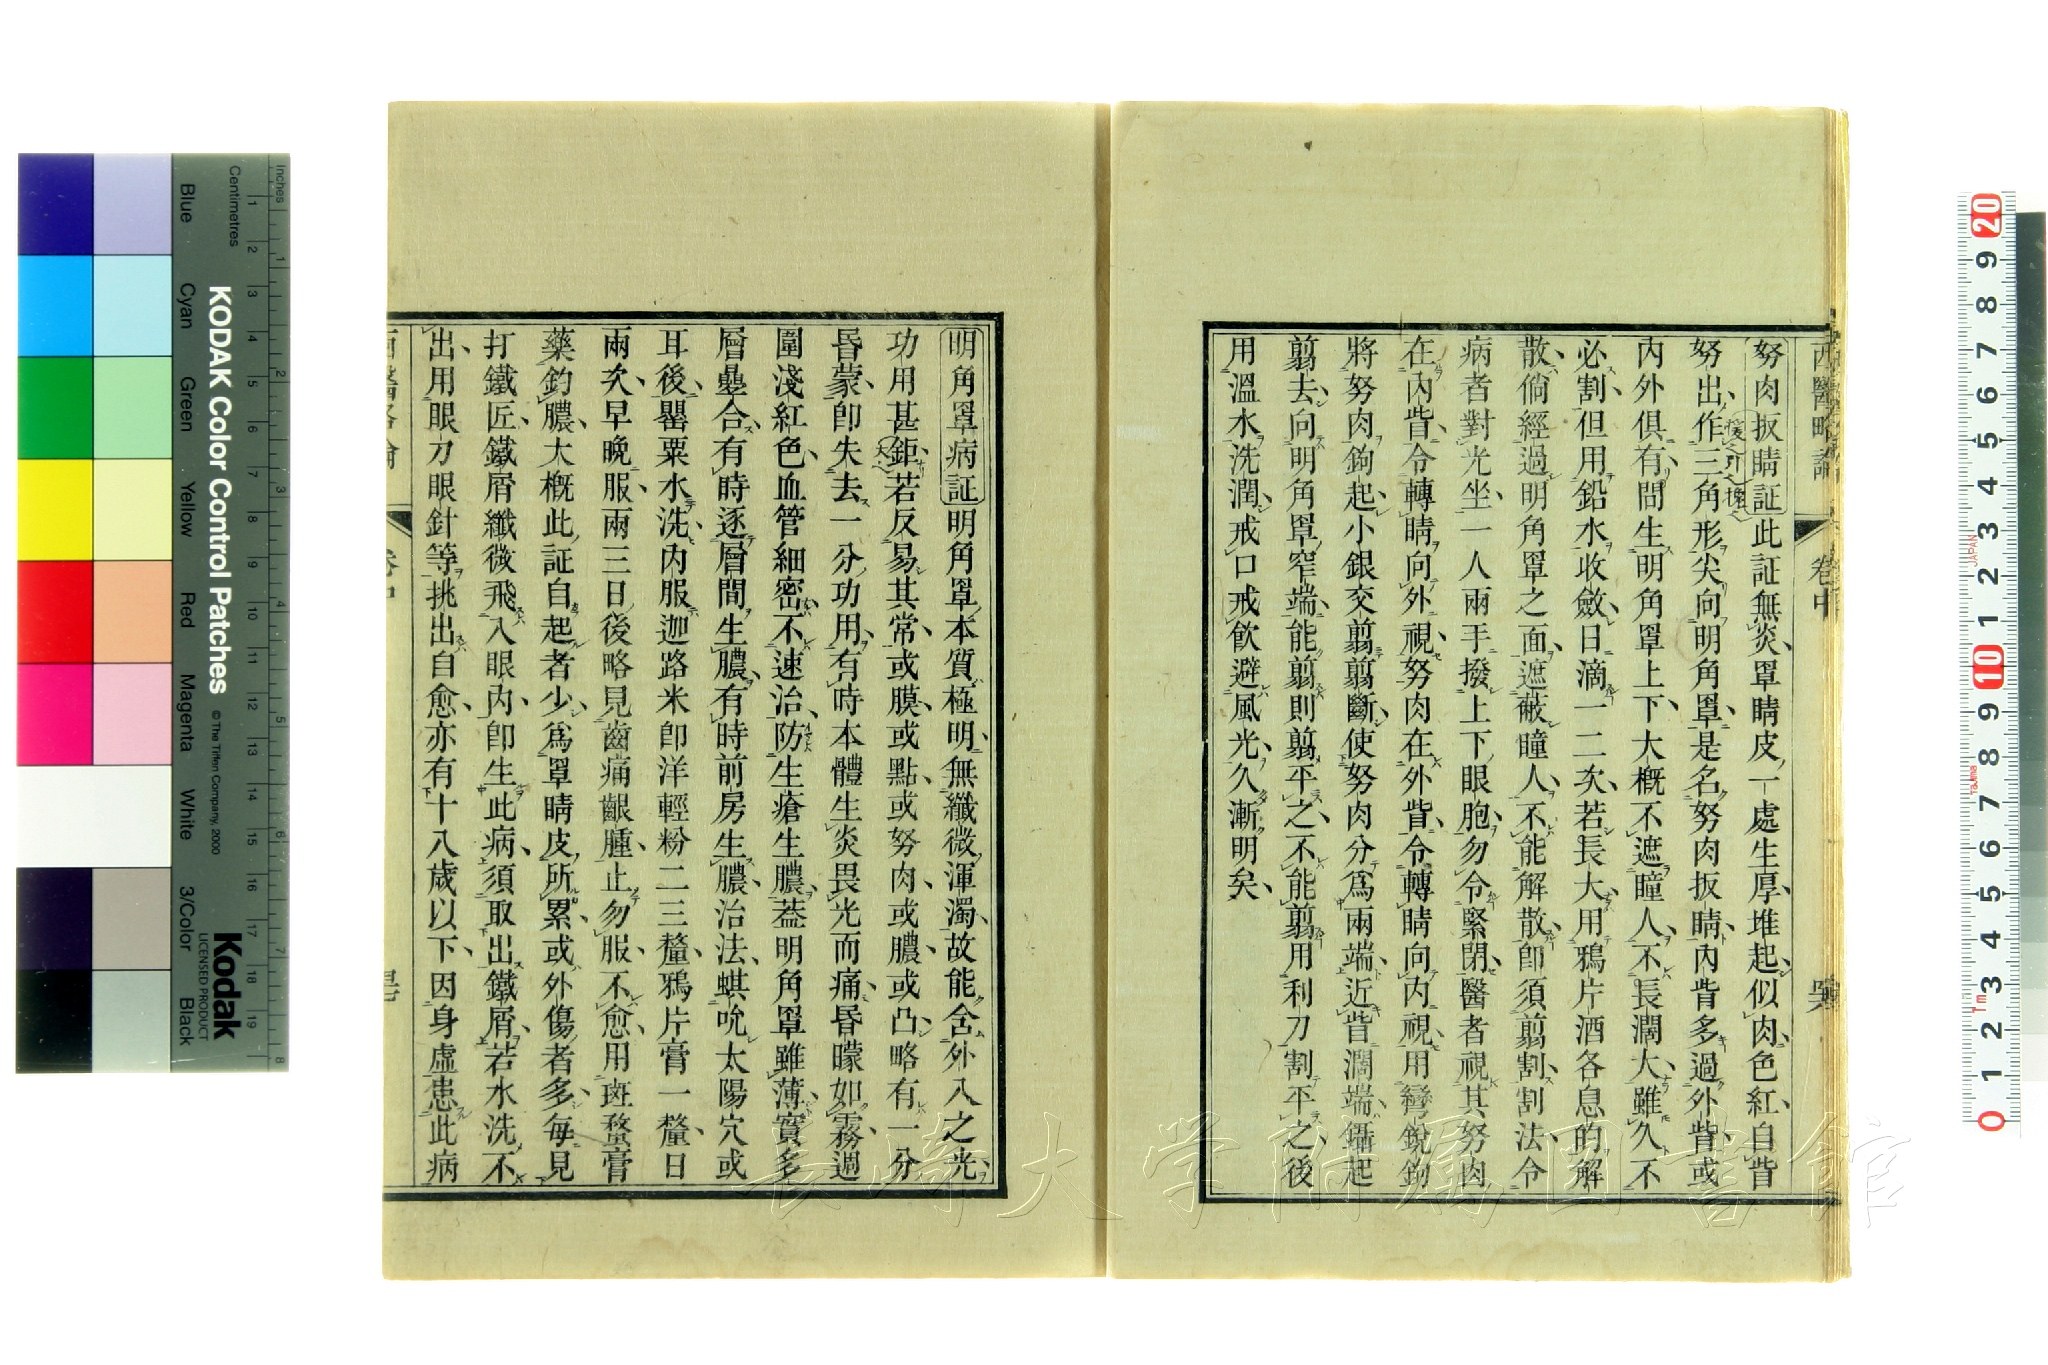 西醫略論 卷中
努肉扳睛証此証無炎罩睛皮一處生厚堆起似肉色紅自眥
努出作三角形尖向明角罩是名努肉扳睛內眥多過外眥或
內外俱有間生明角罩上下大概不遮瞳人不長濶大雖久不
必割但用鉛水收斂日滴一二次若長大用鴉片酒各息的解
散倘經過明角罩之面遮蔽瞳人不能解散即須剪割割法令
病者對光坐一人兩手撥上下眼胞勿令緊閉醫者視其努肉
在內眥令轉睛向外視努肉在外眥令轉睛向內視用彎銳鉤
將努肉鉤起小銀交剪剪斷使努肉分爲兩端近眥濶端鑷起
剪去向明角罩窄端能剪則剪平之不能剪用利刀割平之後
用溫水洗潤戒口戒飲避風光久漸明矣
明角罩病証明角罩本質極明無纖微渾濁故能含外入之光
功用甚鉅若反易其常或膜或點或努肉或膿或凸略有一分
昏蒙即失去一分功用有時本體生炎畏光而痛昏曚如霧週
圍淺紅色血管細密不速治防生瘡生膿葢明角罩雖薄實多
層疊合有時逐層間生膿有時前房生膿治法蜞吮太陽穴或
耳後罌粟水洗內服迦路米即洋輕粉二三釐鴉片膏一釐日
兩次早晚服兩三日後略見齒痛齦腫止勿服不愈用斑蝥膏
藥釣膿大概此証自起者少爲罩睛皮所累或外傷者多每見
打鐵匠鐵屑纖微飛入眼內即生此病須取出鐵屑若水洗不
出用眼刀眼針等挑出自愈亦有十八歲以下因身虛患此病
西醫略論 卷中
KODAK Color Control Patches
© The Tiffen Company, 2000
Kodak
LICENSED PRODUCT
Inches
Centimetres
Blue
Cyan
Green
Yellow
Red
Magenta
White
3/Color
Black
長崎大学附属図書館